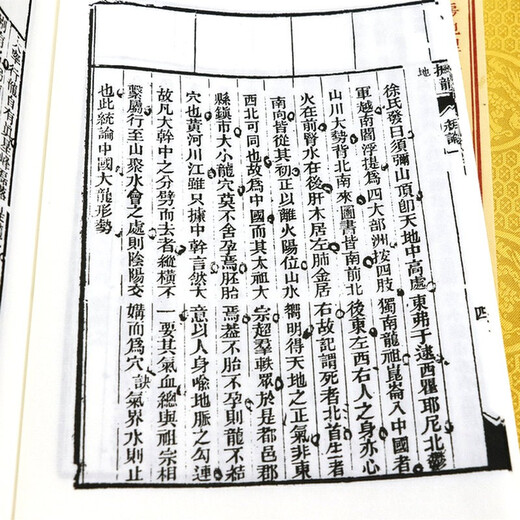 徐氏發曰須彌山頂卽天地中高處東弗于逮西瞿耶尼北鬱
軍越南閻浮提爲四大部洲按四肢獨南龍祖崑崙入中國者
山川大勢背北南來圖書皆南前北後東左西右人之身亦心
火在前腎水在後肝木居左肺金居右故記謂死者北首生者
南向皆從其初正以離火陽位山水嚮明得天地之正氣非東
西北可同也故爲中國而其太祖大宗超羣軼眾於是都邑郡
縣鎮市大小龍穴莫不舍孕焉胚胎焉蓋不胎不孕則龍不結
穴也黃河川江雖只據中幹言然大意以人身喻地脈之勾連
故凡大幹中之分劈而去者縱橫不一要其氣血總與祖宗相
繫屬行至山聚水會之處則陰陽交媾而爲穴訣氣界水則止
也此統論中國大龍形勢
地
龍
四